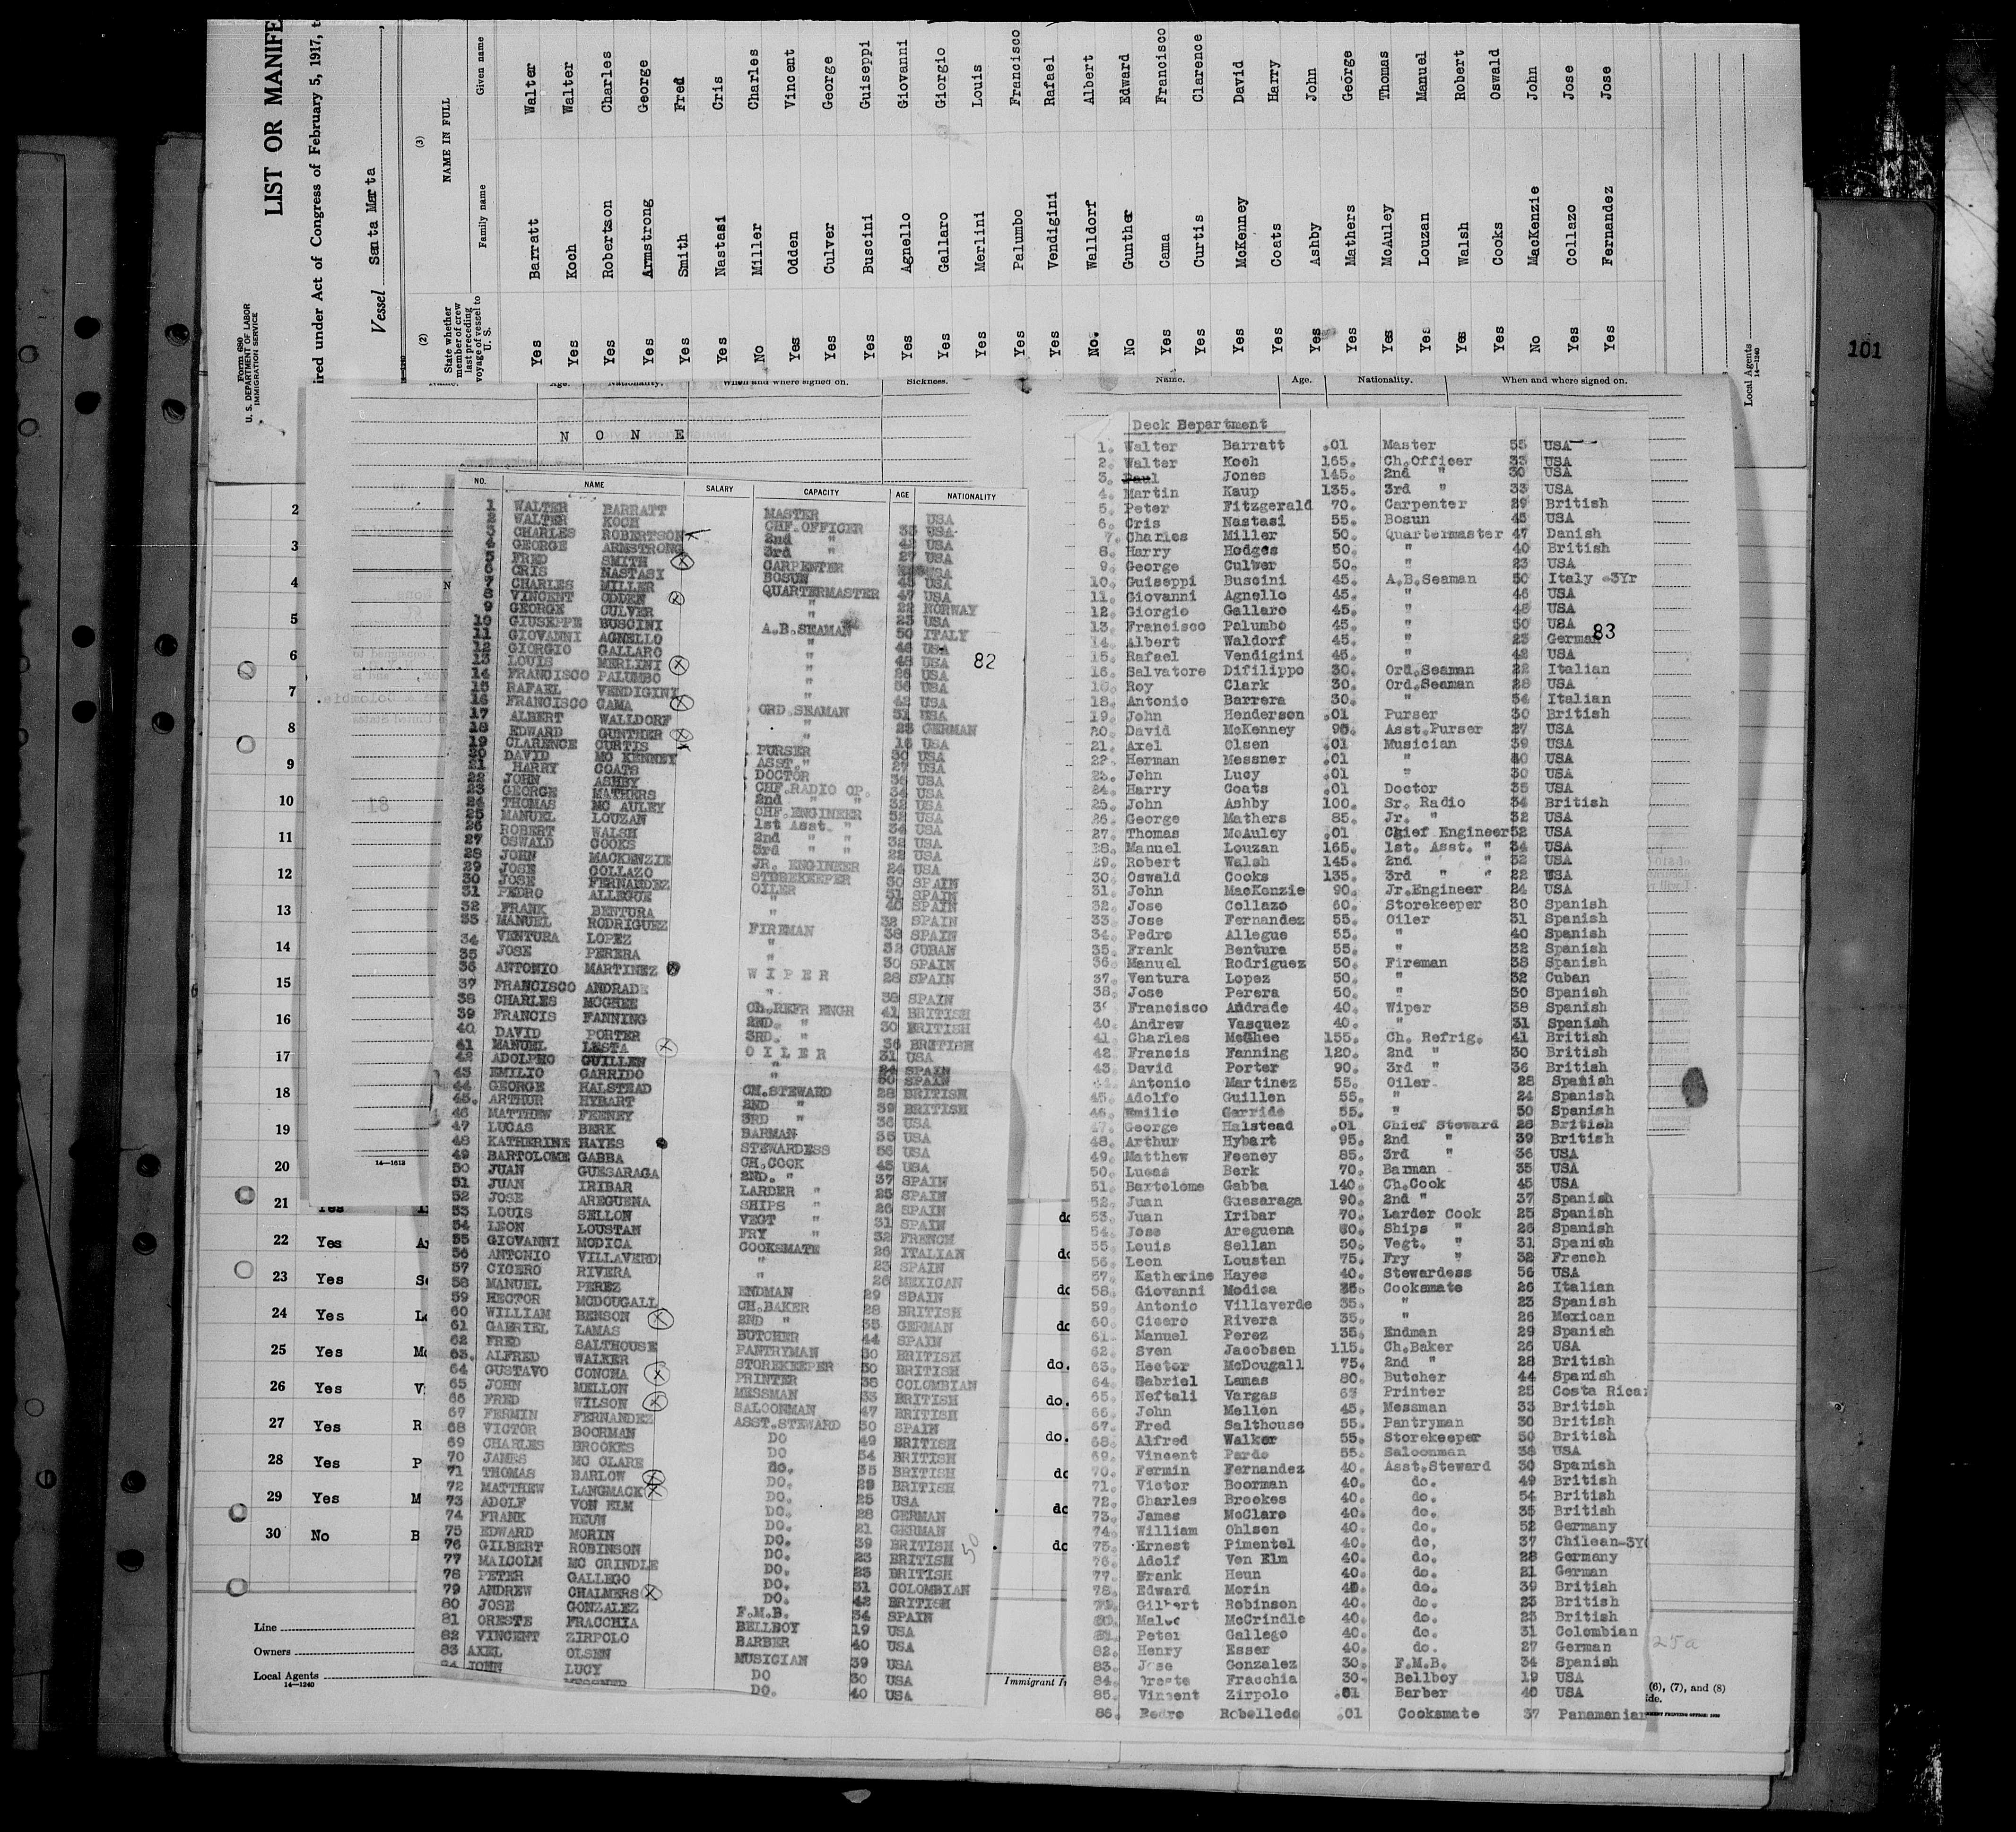 LIST OR MANIFE
ired under Act of Congress of February 5, 1917, t
Vessel Santa Marta
Form 680
U. S. DEPARTMENT OF LABOR
IMMIGRATION SERVICE
(2)
State whether member of crew last preceding voyage of vessel to U. S.
(3)
NAME IN FULL
Family name Given name
Yes Barratt Walter
Yes Koch Walter
Yes Robertson Charles
Yes Armstrong George
Yes Smith Fred
Yes Nastasi Cris
No Miller Charles
Yes Odden Vincent
Yes Culver George
Yes Buscini Guiseppi
Yes Agnello Giovanni
Yes Gallaro Giorgio
Yes Merlini Louis
Yes Palumbo Francisco
Yes Vendigini Rafael
No. Walldorf Albert
No Gunther Edward
Yes Cama Francisco
Yes Curtis Clarence
Yes McKenney David
Yes Coats Harry
Yes Ashby John
Yes Mathers George
Yes McAuley Thomas
Yes Louzan Manuel
Yes Walsh Robert
Yes Cooks Oswald
No MacKenzie John
Yes Collazo Jose
Yes Fernandez Jose
Local Agents
14—1240
101
Name. Age. Nationality. When and where signed on. Sickness.
N O N E
Name. Age. Nationality. When and where signed on.
NO. NAME SALARY CAPACITY AGE NATIONALITY
1 WALTER BARRATT MASTER USA
2 WALTER KOCH CHF.OFFICER 33 USA
3 CHARLES ROBERTSON 2nd " 42 USA
4 GEORGE ARMSTRONG 3rd " 27 USA
5 FRED SMITH CARPENTER USA
6 CRIS NASTASI BOSUN 45 USA
7 CHARLES MILLER QUARTERMASTER 47 USA
8 VINCENT ODDEN " 22 NORWAY
9 GEORGE CULVER " 23 USA
10 GIUSEPPE BUSCINI A.B.SEAMAN 50 ITALY
11 GIOVANNI AGNELLO " 46 USA
12 GIORGIO GALLARO " 48 USA
13 LOUIS MERLINI " 26 USA
14 FRANCISCO PALUMBO " 56 USA
15 RAFAEL VENDIGINI " 42 USA
16 FRANCISCO CAMA ORD.SEAMAN 51 USA
17 ALBERT WALLDORF " 23 GERMAN
18 EDWARD GUNTHER " 18 USA
19 CLARENCE CURTIS PURSER 30 USA
20 DAVID MC KENNEY ASST." 27 USA
21 HARRY COATS DOCTOR 36 USA
22 JOHN ASHBY CHF.RADIO OP. 34 USA
23 GEORGE MATHERS 2nd " " 32 USA
24 THOMAS MC AULEY CHF.ENGINEER 52 USA
25 MANUEL LOUZAN 1st Asst. " 34 USA
26 ROBERT WALSH 2nd " " 32 USA
27 OSWALD COOKS 3rd " " 22 USA
28 JOHN MACKENZIE JR. ENGINEER 24 USA
29 JOSE COLLAZO STOREKEEPER 30 SPAIN
30 JOSE FERNANDEZ OILER 31 SPAIN
31 PEDRO ALLEGUE " 40 SPAIN
32 FRANK BENTURA " 32 SPAIN
33 MANUEL RODRIGUEZ FIREMAN 38 SPAIN
34 VENTURA LOPEZ " 32 CUBAN
35 JOSE PERERA " 30 SPAIN
36 ANTONIO MARTINEZ W I P E R 28 SPAIN
37 FRANCISCO ANDRADE " 38 SPAIN
38 CHARLES MCGHEE Ch.REFR ENGR 41 BRITISH
39 FRANCIS FANNING 2ND. " 30 BRITISH
40 DAVID PORTER 3RD. " 36 BRITISH
41 MANUEL LESTA O I L E R 31 USA
42 ADOLPHO GUILLEN " 24 SPAIN
43 EMILIO GARRIDO " 50 SPAIN
44 GEORGE HALSTEAD CH.STEWARD 28 BRITISH
45. ARTHUR HYBART 2ND " 39 BRITISH
46 MATTHEW FEENEY 3RD " 36 USA
47 LUCAS BERK BARMAN 35 USA
48 KATHERINE HAYES STEWARDESS 56 USA
49 BARTOLOME GABBA CH.COOK 45 USA
50 JUAN GUESARAGA 2ND. " 37 SPAIN
51 JUAN IRIBAR LARDER " 25 SPAIN
52 JOSE AREGUENA SHIPS " 26 SPAIN
53 LOUIS SELLON VEGT " 31 SPAIN
54 LEON LOUSTAN FRY " 32 FRENCH
55 GIOVANNI MODICA COOKSMATE 26 ITALIAN
56 ANTONIO VILLAVERD " 23 SPAIN
57 CICERO RIVERA " 26 MEXICAN
58 MANUEL PEREZ ENDMAN 29 SPAIN
59 HECTOR MCDOUGALL CH.BAKER 28 BRITISH
60 WILLIAM BENSON 2ND " 35 GERMAN
61 GABRIEL LAMAS BUTCHER 44 SPAIN
62 FRED SALTHOUSE PANTRYMAN 30 BRITISH
63. ALFRED WALKER STOREKEEPER 50 BRITISH
64 GUSTAVO CONCHA PRINTER 38 COLOMBIAN
65 JOHN MELLON MESSMAN 33 BRITISH
66 FRED WILSON SALOONMAN 47 BRITISH
67 FERMIN FERNANDEZ ASST.STEWARD 30 SPAIN
68 VICTOR BOORMAN DO 49 BRITISH
69 CHARLES BROOKES DO 54 BRITISH
70 JAMES MC CLARE do. 35 BRITISH
71 THOMAS BARLOW DO. 29 BRITISH
72 MATTHEW LANGMACK DO. 25 USA
73 ADOLF VON ELM DO. 28 GERMAN
74 FRANK HEUN DO. 21 GERMAN
75 EDWARD MORIN DO. 39 BRITISH
76 GILBERT ROBINSON DO. 23 BRITISH
77 MALCOLM MC CRINDLE DO. 23 BRITISH
78 PETER GALLEGO DO. 31 COLOMBIAN
79 ANDREW CHALMERS DO. 42 BRITISH
80 JOSE GONZALEZ F.M.B. 34 SPAIN
81 ORESTE FRACCHIA BELLBOY 19 USA
82 VINCENT ZIRPOLO BARBER 40 USA
83 AXEL OLSEN MUSICIAN 39 USA
84 JOHN LUCY DO 30 USA
MESSNER DO. 40 USA
82
50
Deck Bepartment
1. Walter Barratt .01 Master 55 USA
2. Walter Koch 165. Ch.Officer 33 USA
3. Paul Jones 145. 2nd " 30 USA
4. Martin Kaup 135. 3rd " 33 USA
5. Peter Fitzgerald 70. Carpenter 29 British
6. Cris Nastasi 55. Bosun 45 USA
7. Charles Miller 50. Quartermaster 47 Danish
8. Harry Hodges 50. " 40 British
9. George Culver 50. " 23 USA
10. Guiseppi Buscini 45. A.B.Seaman 50 Italy -3Yr
11. Giovanni Agnello 45. " 46 USA
12. Giorgio Gallaro 45. " 48 USA
13. Francisco Palumbo 45. " 50 USA
14. Albert Waldorf 45. " 23 German
83
15. Rafael Vendigini 45. " 42 USA
16. Salvatore Difilippo 30. Ord.Seaman 22 Italian
Roy Clark 30. Ord.Seaman 28 USA
18. Antonio Barrera 30. " 54 Italian
19. John Henderson .01 Purser 30 British
20. David McKenney 90. Asst.Purser 27 USA
21. Axel Olsen .01 Musician 39 USA
22. Herman Messner .01 " 40 USA
23. John Lucy .01 " 30 USA
24. Harry Coats .01 Doctor 35 USA
25. John Ashby 100. Sr. Radio 34 British
26. George Mathers 85. Jr. " 32 USA
27. Thomas McAuley .01 Chief Engineer 52 USA
28. Manuel Louzan 165. 1st. Asst. " 34 USA
29. Robert Walsh 145. 2nd " " 32 USA
30. Oswald Cooks 135. 3rd " " 22 USA
31. John MacKenzie 90. Jr.Engineer 24 USA
32. Jose Collazo 60. Storekeeper 30 Spanish
33. Jose Fernandez 55. Oiler 31 Spanish
34. Pedro Allegue 55. " 40 Spanish
35. Frank Bentura 55. " 32 Spanish
36. Manuel Rodriguez 50. Fireman 38 Spanish
37. Ventura Lopez 50. " 32 Cuban
38. Jose Perera 50. " 30 Spanish
39 Francisco Andrade 40. Wiper 38 Spanish
40. Andrew Vasquez 40. " 31 Spanish
41. Charles McGhee 155. Ch. Refrig. 41 British
42. Francis Fanning 120. 2nd " 30 British
43. David Porter 90. 3rd " 36 British
44. Antonio Martinez 55. Oiler 28 Spanish
45. Adolfo Guillen 55. " 24 Spanish
46. Emilio Garrido 55. " 50 Spanish
47. George Halstead .01 Chief Steward 28 British
48. Arthur Hybart 95. 2nd " 39 British
49. Matthew Feeney 85. 3rd " 36 USA
50. Lucas Berk 70. Barman 35 USA
51. Bartolome Gabba 140. Ch.Cook 45 USA
52. Juan Guesaraga 90. 2nd " 37 Spanish
53. Juan Iribar 70. Larder Cook 25 Spanish
54. Jose Areguena 60. Ships " 26 Spanish
55. Louis Sellan 50. Vegt. " 31 Spanish
56. Leon Loustan 75. Fry " 32 French
57. Katherine Hayes 40. Stewardess 56 USA
58. Giovanni Modica 35. Cooksmate 26 Italian
59. Antonio Villaverde 35. " 23 Spanish
60. Cicero Rivera 35. " 26 Mexican
61. Manuel Perez 35. Endman 29 Spanish
62. Sven Jacobsen 115. Ch.Baker 26 USA
63. Hector McDougall 75. 2nd " 28 British
64. Gabriel Lamas 80. Butcher 44 Spanish
65. Neftali Vargas 65 Printer 25 Costa Rica
66. John Mellon 45. Messman 33 British
67. Fred Salthouse 55. Pantryman 30 British
68. Alfred Walker 55. Storekeeper 50 British
69. Vincent Pardo 55. Saloonman 38 USA
70. Fermin Fernandez 40. Asst.Steward 30 Spanish
71. Victor Boorman 40. do. 49 British
72. Charles Brookes 40. do. 54 British
73. James McClare 40. do. 35 British
74. William Ohlsen 40. do. 52 Germany
75. Ernest Pimentel 40. do, 37 Chilean-3Y
76. Adolf Von Elm 40. do. 28 Germany
77. Frank Heun 40. do. 21 German
78. Edward Morin 40. do. 39 British
79. Gilbert Robinson 40. do. 23 British
80. Malcc McCrindle 40. do. 23 British
81. Peter Gallego 40. do. 31 Colombian
82. Henry Esser 40. do. 27 German
83. Jose Gonzalez 30. F.M.B. 34 Spanish
84. Oreste Fracchia 30. Bellboy 19 USA
85. Vincent Zirpolo .01 Barber 40 USA
86. Pedro Robelledo .01 Cooksmate 37 Panamanian
25a
2
3
4
5
6
7
8
9
10
11
12
13
14
15
16
17
18
19
20
14—1613
21 Yes
22 Yes
23 Yes
24 Yes
25 Yes
26 Yes
27 Yes
28 Yes
29 Yes
30 No
do
do
do
do
do.
do.
do.
do
do
do
Line
Owners
Local Agents
14—1240
Immigrant I
(6), (7), and (8)
ide.